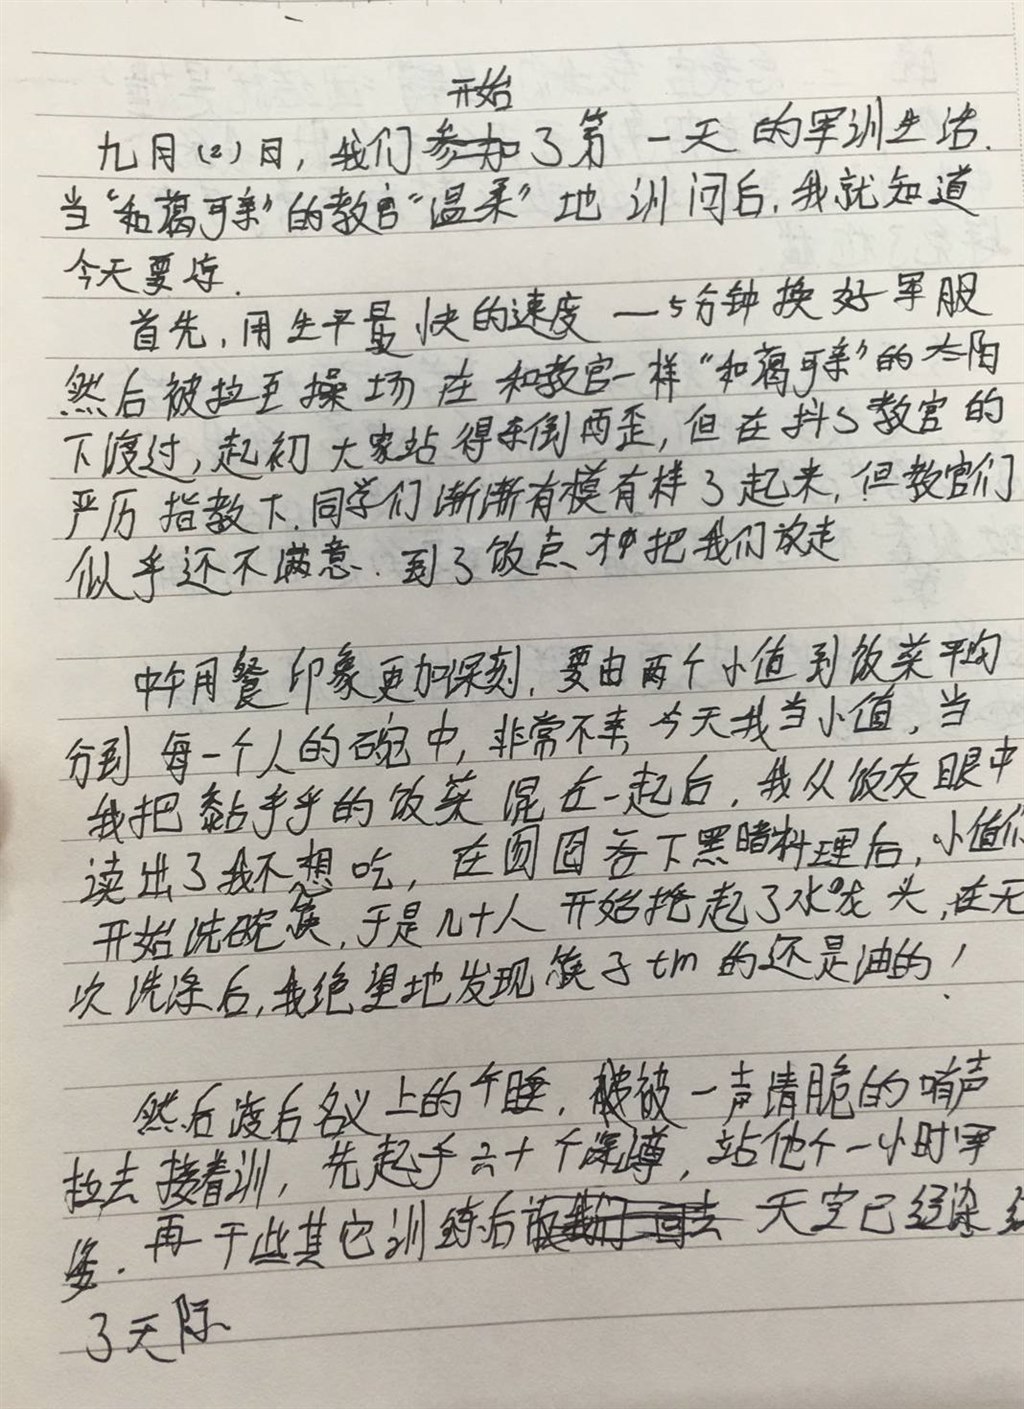 开始
九月(2)日，我们参加了第一天的军训生活.
当"和蔼可亲"的教官"温柔"地训问后，我就知道
今天要凉.
首先，用生平最快的速度—5分钟换好军服
然后被拉至操场在和教官一样"和蔼可亲"的太阳
下渡过，起初大家站得东倒西歪，但在抖S教官的
严厉指教下.同学们渐渐有模有样了起来，但教官们
似乎还不满意.到了饭点才把我们放走
中午用餐印象更加深刻，要由两个小值到饭菜平均
分到每一个人的碗中，非常不幸，今天我当小值，当
我把黏手手的饭菜混在一起后，我从饭友眼中
读出了我不想吃，在囫囵吞下黑暗料理后，小值们
开始洗碗筷，于是几十人开始抢起了水龙头，在无
次洗涤后，我绝望地发现筷子tm的还是油的！
然后渡后名义上的午睡，被一声清脆的哨声
拉去接着训，先起手六十个深蹲，站他个一小时军
姿.再干些其它训练后放我们回去天空已经染红
了天际